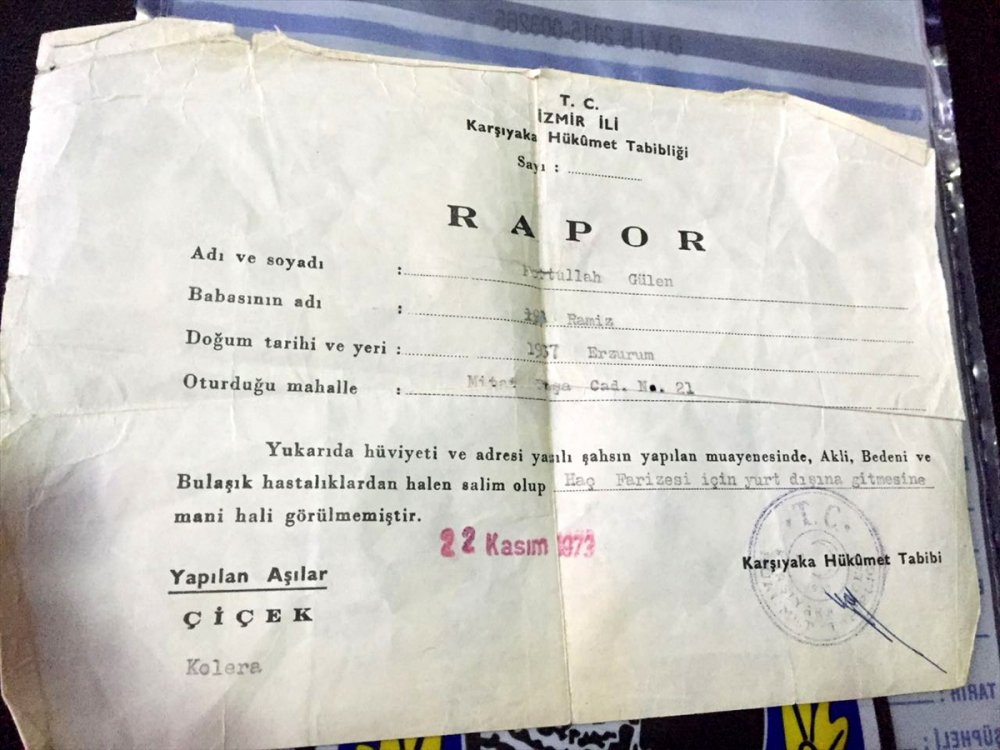 T. C.
İZMİR İLİ
Karşıyaka Hükûmet Tabibliği
Sayı : ....................
RAPOR
Adı ve soyadı : Fettullah Gülen
Babasının adı : Ramiz
Doğum tarihi ve yeri : 1937 Erzurum
Oturduğu mahalle : Mitat Paşa Cad. No. 21
Yukarıda hüviyeti ve adresi yazılı şahsın yapılan muayenesinde, Akli, Bedeni ve
Bulaşık hastalıklardan halen salim olup Haç Farizesi için yurt dışına gitmesine
mani hali görülmemiştir.
22 Kasım 1973
Karşıyaka Hükûmet Tabibi
T.C.
Yapılan Aşılar
ÇİÇEK
Kolera
TARİH :
ŞÜPHELİ :